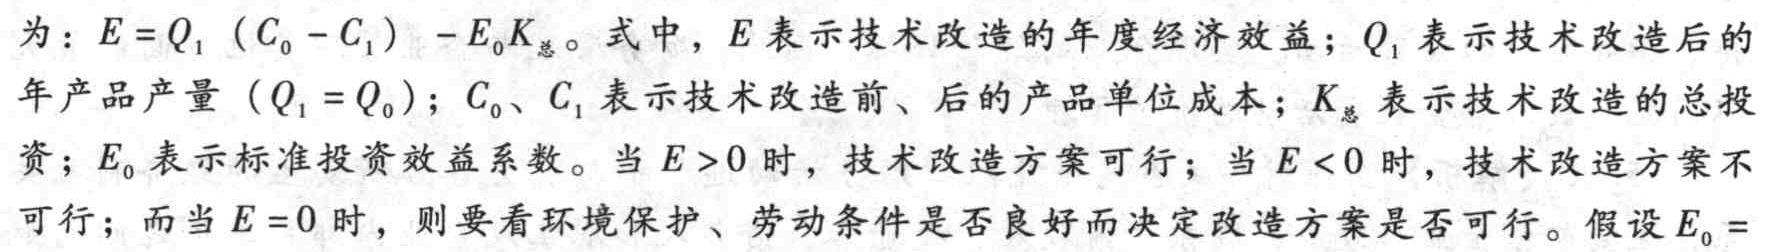 为：E = Q₁（C₀ - C₁）- E₀K总。式中，E 表示技术改造的年度经济效益；Q₁ 表示技术改造后的
年产品产量（Q₁ = Q₀）；C₀、C₁ 表示技术改造前、后的产品单位成本；K总 表示技术改造的总投
资；E₀ 表示标准投资效益系数。当 E > 0 时，技术改造方案可行；当 E < 0 时，技术改造方案不
可行；而当 E = 0 时，则要看环境保护、劳动条件是否良好而决定改造方案是否可行。假设 E₀ =